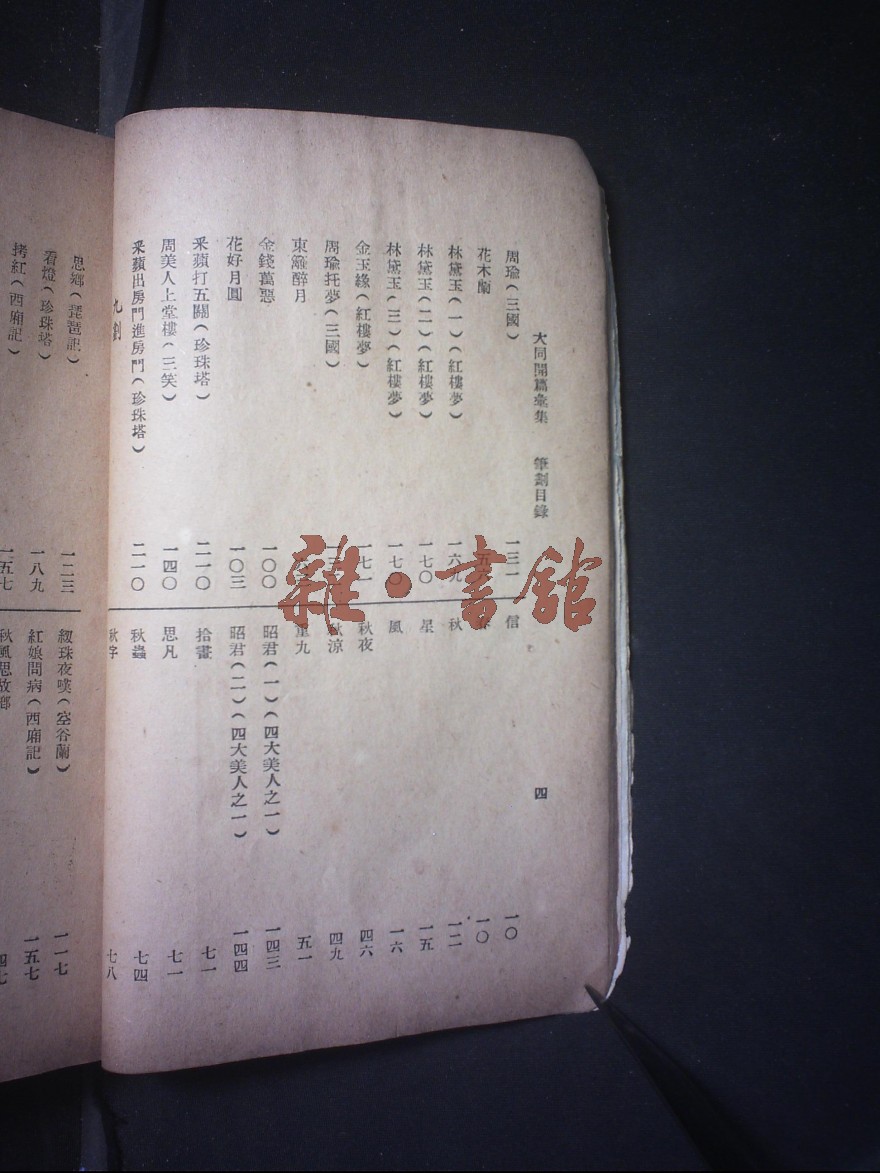 大同開篇彙集　筆劃目錄　四
周瑜(三國)　一三一
花木蘭
林黛玉(一)(紅樓夢)　一六九
林黛玉(二)(紅樓夢)　一七〇
林黛玉(三)(紅樓夢)　一七〇
金玉緣(紅樓夢)　一七一
周瑜托夢(三國)
東籬醉月
金錢萬惡　一〇〇
花好月圓　一〇三
采蘋打五關(珍珠塔)　二一〇
周美人上堂樓(三笑)　一四〇
采蘋出房門進房門(珍珠塔)　二一〇
九劃
信　一〇
春　一〇
秋　一二
星　一五
風　一六
秋夜　四六
秋涼　四九
重九　五一
昭君(一)(四大美人之一)　一四三
昭君(二)(四大美人之一)　一四四
拾畫　七一
思凡　七一
秋蟲　七四
秋字　七八
思鄉(琵琶記)　一二三
看燈(珍珠塔)　一八九
拷紅(西廂記)　一五七
紉珠夜嘆(空谷蘭)　一一七
紅娘問病(西廂記)　一五七
秋風思故鄉
雜·書館